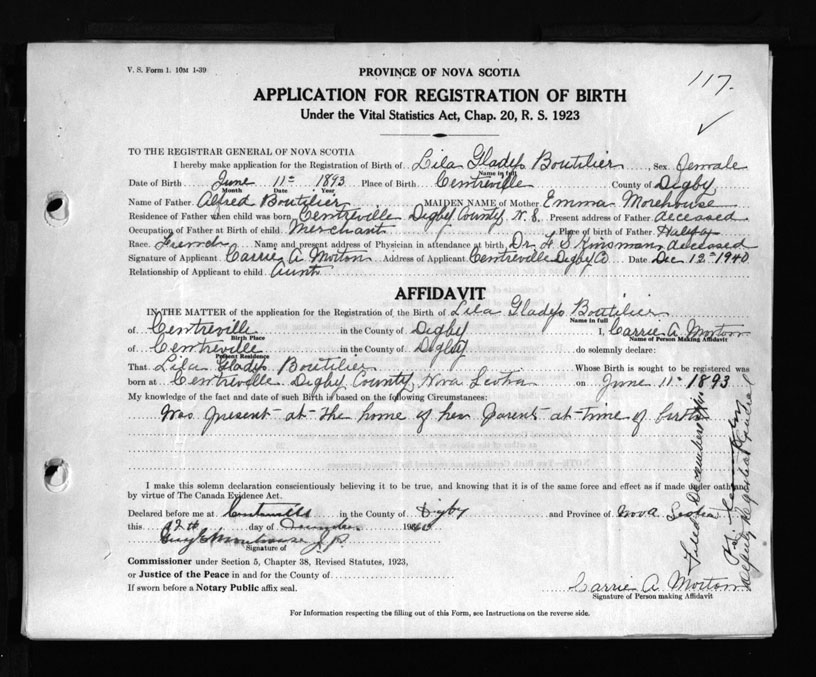 V. S. Form 1. 10M 1-39
PROVINCE OF NOVA SCOTIA
117.
APPLICATION FOR REGISTRATION OF BIRTH
Under the Vital Statistics Act, Chap. 20, R. S. 1923
TO THE REGISTRAR GENERAL OF NOVA SCOTIA
I hereby make application for the Registration of Birth of Lila Gladys Boutilier Sex. Female
Name in full
Date of Birth June 11th 1893 Place of Birth Centreville County of Digby
Month Date Year
Name of Father Alfred Boutilier MAIDEN NAME of Mother Emma Morehouse
Residence of Father when child was born Centreville Digby County N. S. Present address of Father deceased
Occupation of Father at Birth of child Merchant Place of birth of Father Halifax
Race. French Name and present address of Physician in attendance at birth Dr. F S Kinsman, deceased
Signature of Applicant Carrie A. Morton Address of Applicant Centreville Digby Co Date Dec 12th 1940
Relationship of Applicant to child Aunt
AFFIDAVIT
IN THE MATTER of the application for the Registration of the Birth of Lila Gladys Boutilier
Name in full
of Centreville in the County of Digby I, Carrie A. Morton
Birth Place Name of Person Making Affidavit
of Centreville in the County of Digby do solemnly declare:
Present Residence
That Lila Gladys Boutilier Whose Birth is sought to be registered was
born at Centreville Digby County, Nova Scotia on June 11th 1893
My knowledge of the fact and date of such Birth is based on the following Circumstances:
Was present at the home of her parents at time of birth
I make this solemn declaration conscientiously believing it to be true, and knowing that it is of the same force and effect as if made under oath
by virtue of The Canada Evidence Act.
Declared before me at Centreville in the County of Digby and Province of Nova Scotia
this 12th day of December 1940
Morehouse J. P.
Signature of
Commissioner under Section 5, Chapter 38, Revised Statutes, 1923,
or Justice of the Peace in and for the County of
If sworn before a Notary Public affix seal.
Carrie A. Morton
Signature of Person making Affidavit
For Information respecting the filling out of this Form, see Instructions on the reverse side.
Filed December
Deputy Registrar General